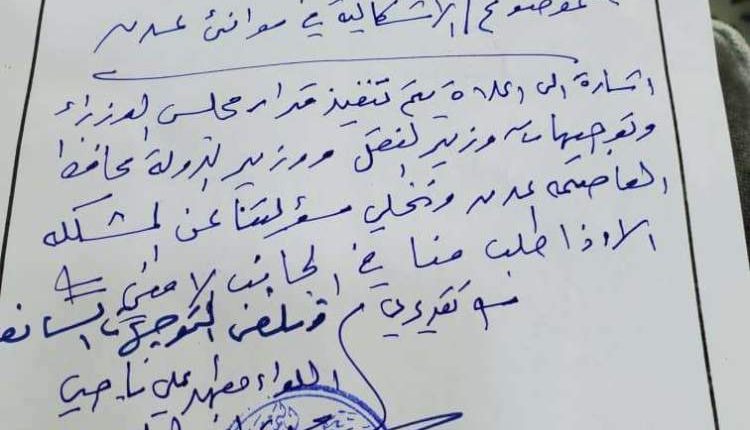 الموضوع / الاشكالية في موانئ عدن
اشارة الى اعلاه يتم تنفيذ قرار مجلس الوزراء
وتوجيهات وزير النقل ووزير الدولة محافظ
العاصمه عدن ونخلي مسؤليتنا عن المشكله
الا اذا طلب منا في الجانب الامني
مع تقديري
وتلغى التوجيهات السابقه
اللواء مطهر علي ناجي